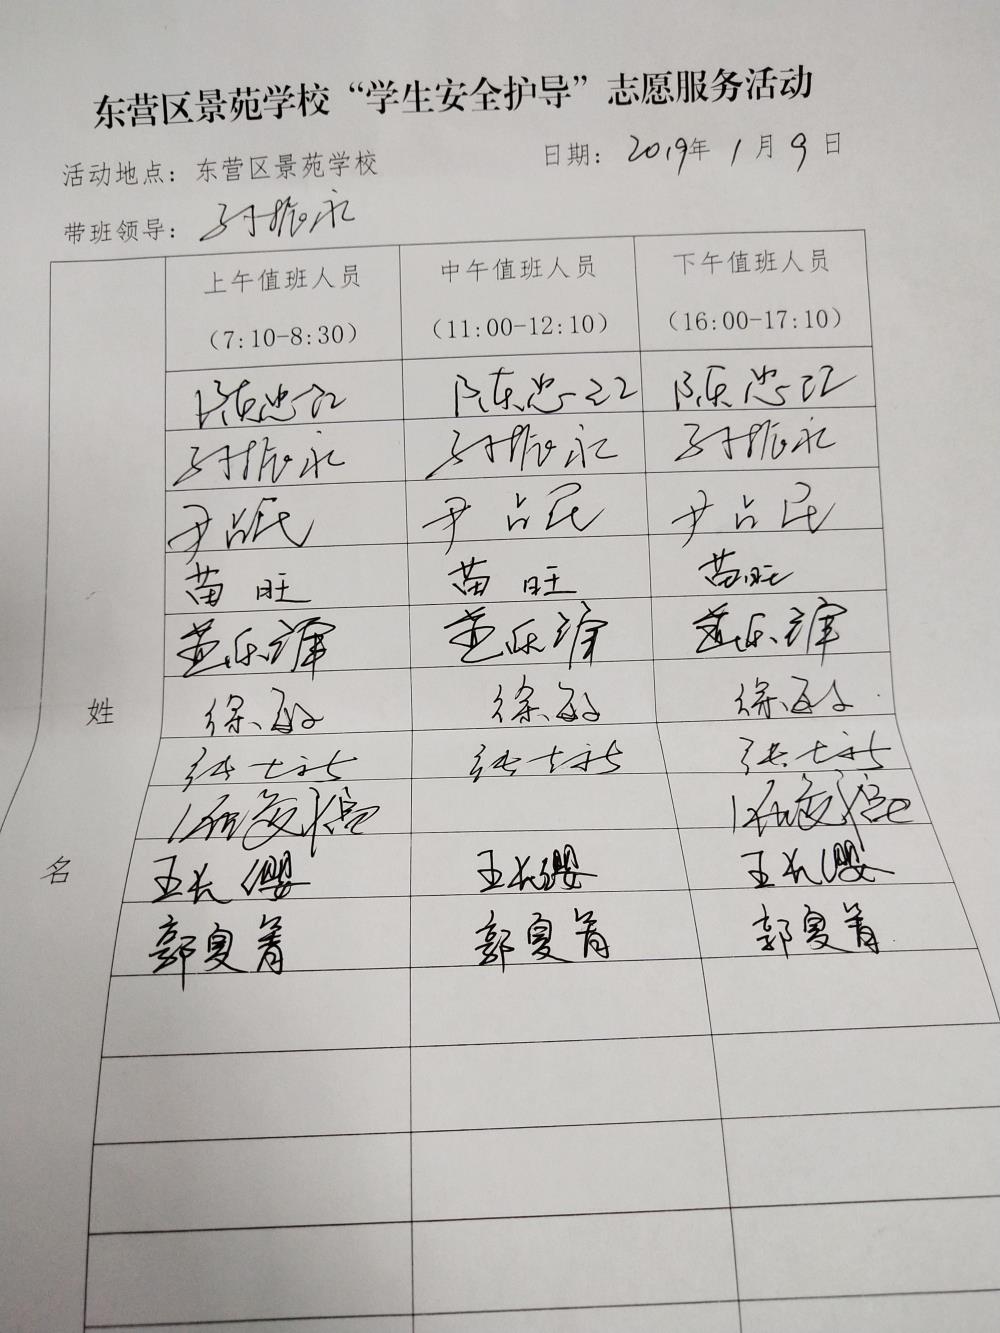 东营区景苑学校“学生安全护导”志愿服务活动
活动地点：东营区景苑学校 日期：2019年1月9日
带班领导：孙振永
上午值班人员 中午值班人员 下午值班人员
(7:10-8:30) (11:00-12:10) (16:00-17:10)
陈忠江 陈忠江 陈忠江
孙振永 孙振永 孙振永
尹占民 尹占民 尹占民
苗旺 苗旺 苗旺
盖乐 盖乐 盖乐
徐敏 徐敏 徐敏
姓
张 张 张
王长缨 王长缨 王长缨
名
郭夏菁 郭夏菁 郭夏菁